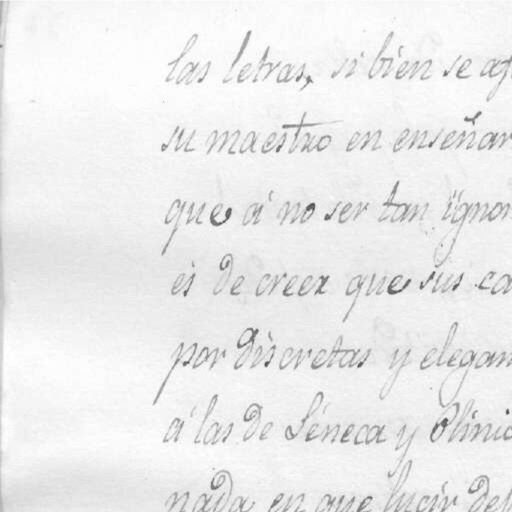 las letras, si bien se af
su maestro en enseñar
que á no ser tan ignor
és de creer que sus ca
por discretas y elegan
á las de Séneca y Plinio
nada en que lucir de